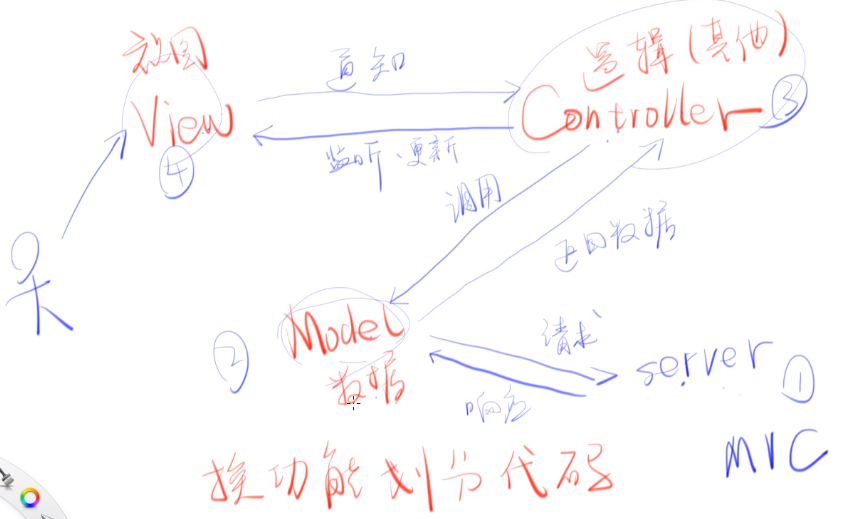 视图
View
④
通知
监听、更新
逻辑(其他)
Controller
③
调用
返回数据
Model
②
数据
请求
响应
server
①
MVC
按功能划分代码